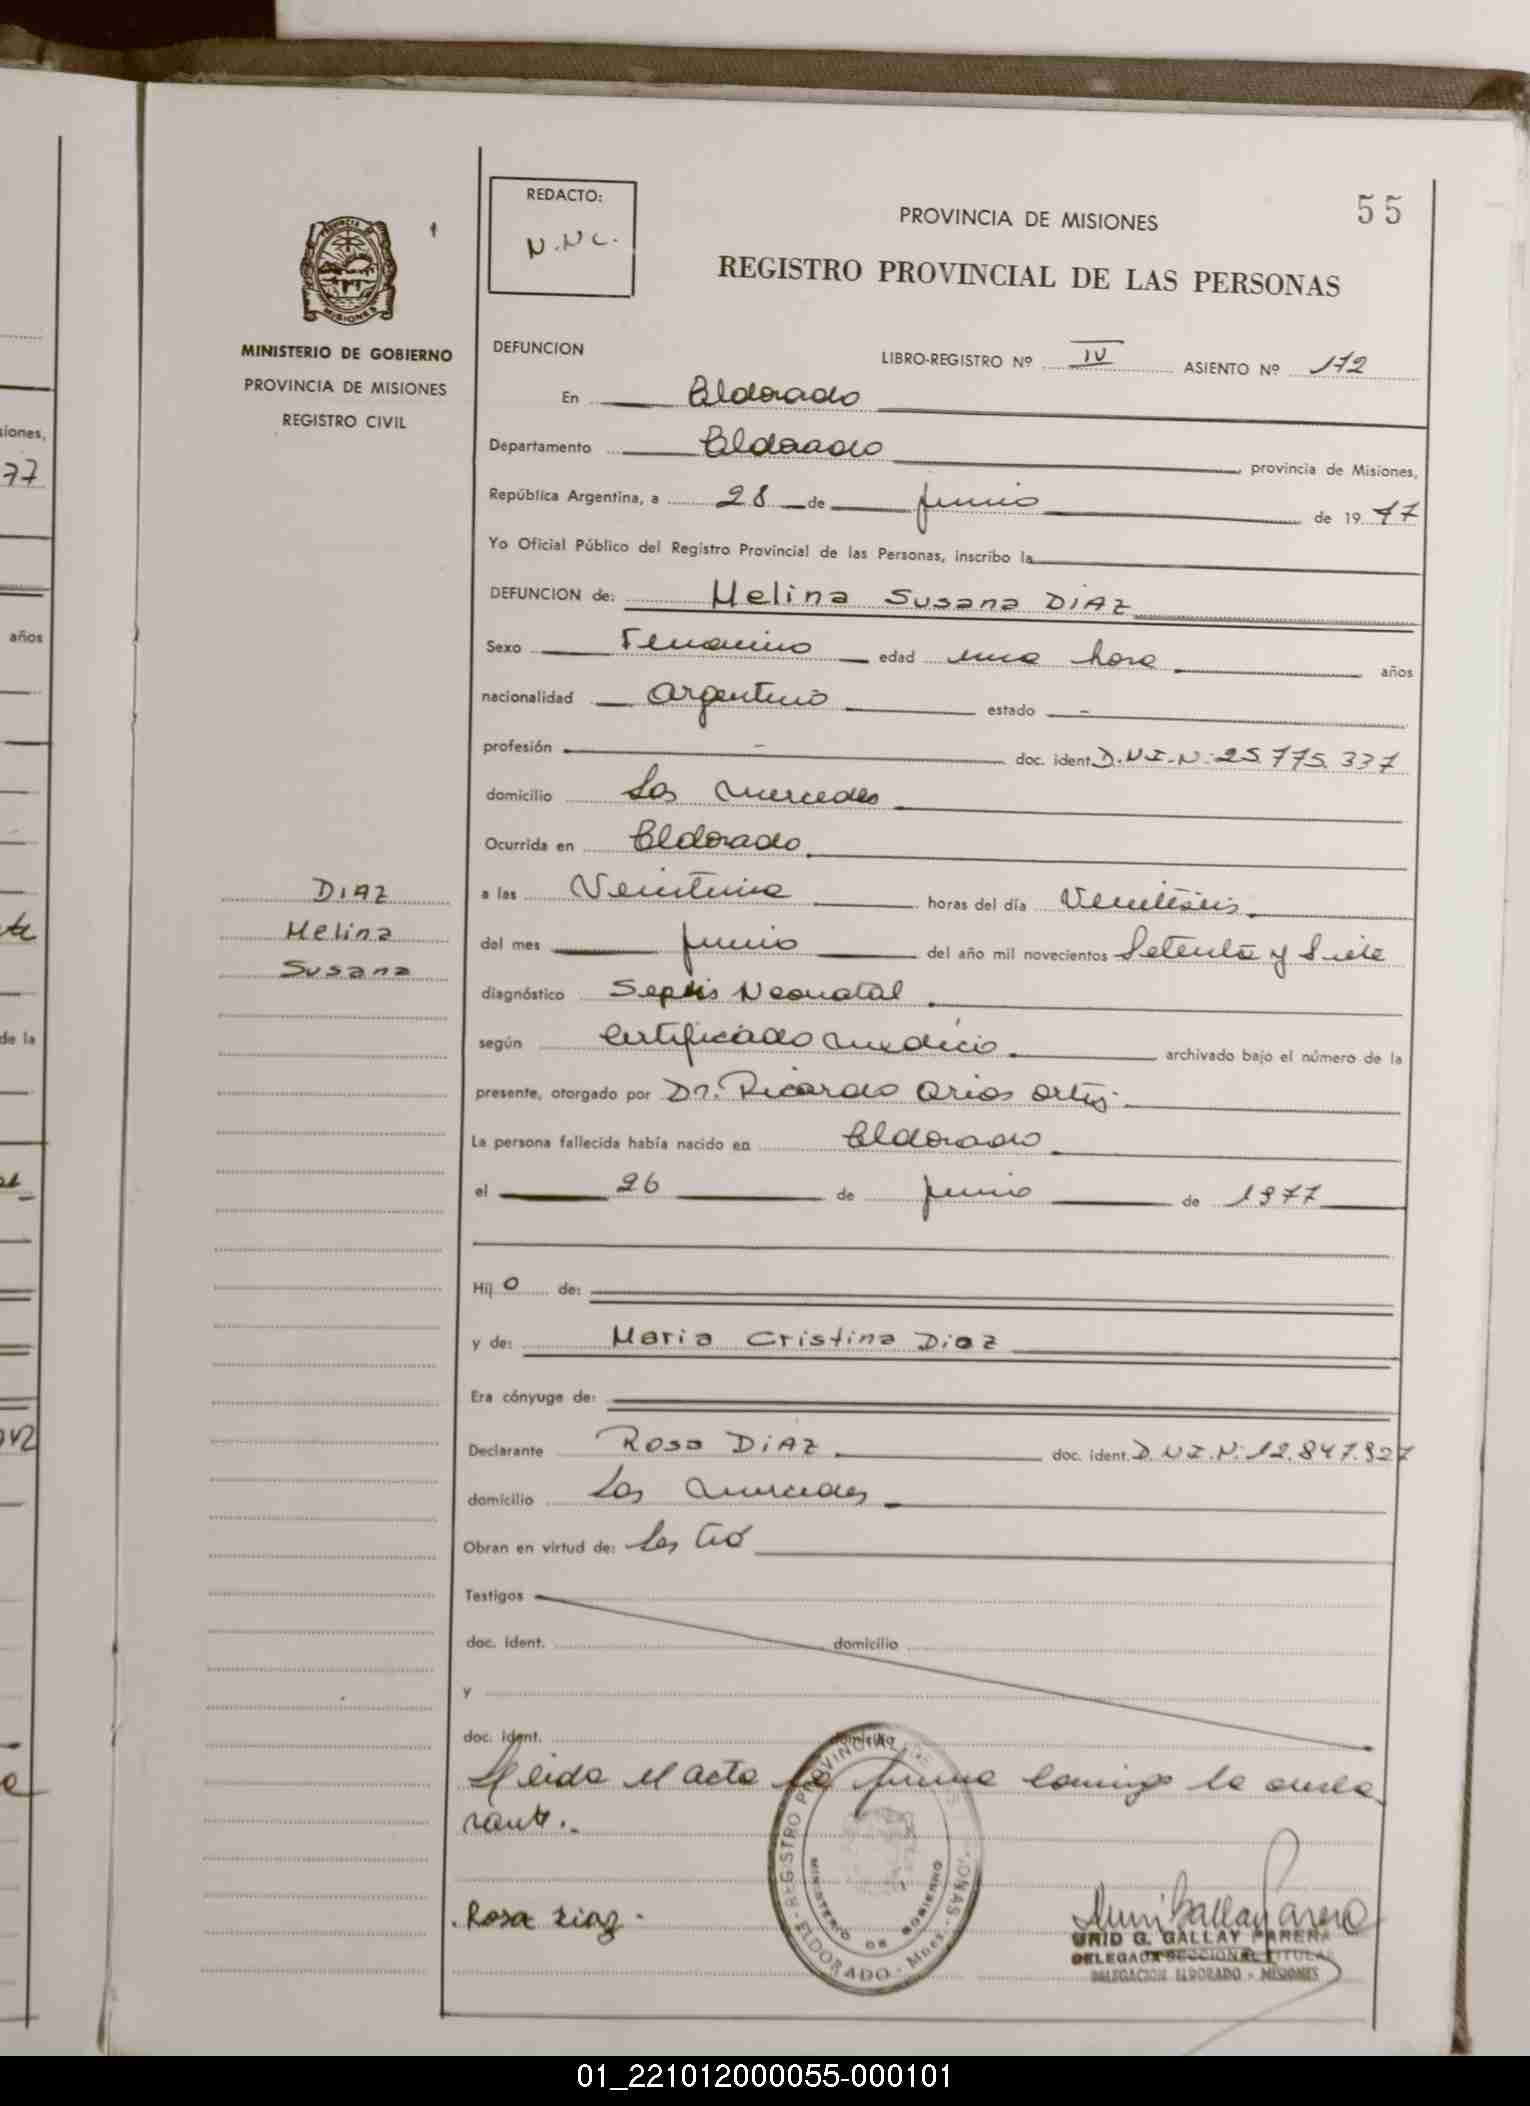 55
REDACTO:
N.NC.
PROVINCIA DE MISIONES
REGISTRO PROVINCIAL DE LAS PERSONAS
PROVINCIA DE
MISIONES
MINISTERIO DE GOBIERNO
PROVINCIA DE MISIONES
REGISTRO CIVIL
DEFUNCION
LIBRO-REGISTRO Nº IV ASIENTO Nº 172
En Eldorado
Departamento Eldorado provincia de Misiones,
República Argentina, a 28 de junio de 19 77
Yo Oficial Público del Registro Provincial de las Personas, inscribo la
DEFUNCION de: Melina Susana DIAZ
Sexo Femenino edad una hora años
nacionalidad argentina estado -
profesión - doc. ident. D.N.I.N: 25.775.337
domicilio Las mercedes
Ocurrida en Eldorado
a las Veintiuna horas del día Veintiseis
del mes junio del año mil novecientos Setenta y Siete
diagnóstico Sepsis Neonatal
según certificado medico archivado bajo el número de la
presente, otorgado por Dr. Ricardo Arias Ortiz
La persona fallecida había nacido en Eldorado
el 26 de junio de 1977
Hij o de:
y de: Maria Cristina Diaz
Era cónyuge de:
Declarante Rosa DIAZ doc. ident. D.N.I.N: 12.847.327
domicilio Las mercedes
Obran en virtud de: Ser tia
Testigos
doc. ident. domicilio
y
doc. ident. domicilio
Leida el acta la firma conmigo la decla
rante.
Rosa Diaz
DIAZ
Melina
Susana
REGISTRO PROVINCIAL DE LAS PERSONAS
MINISTERIO DE GOBIERNO
ELDORADO - Mnes.
URID G. GALLAY PARERA
DELEGADA SECCIONAL TITULAR
DELEGACION ELDORADO - MISIONES
siones,
77
años
de la
01_221012000055-000101